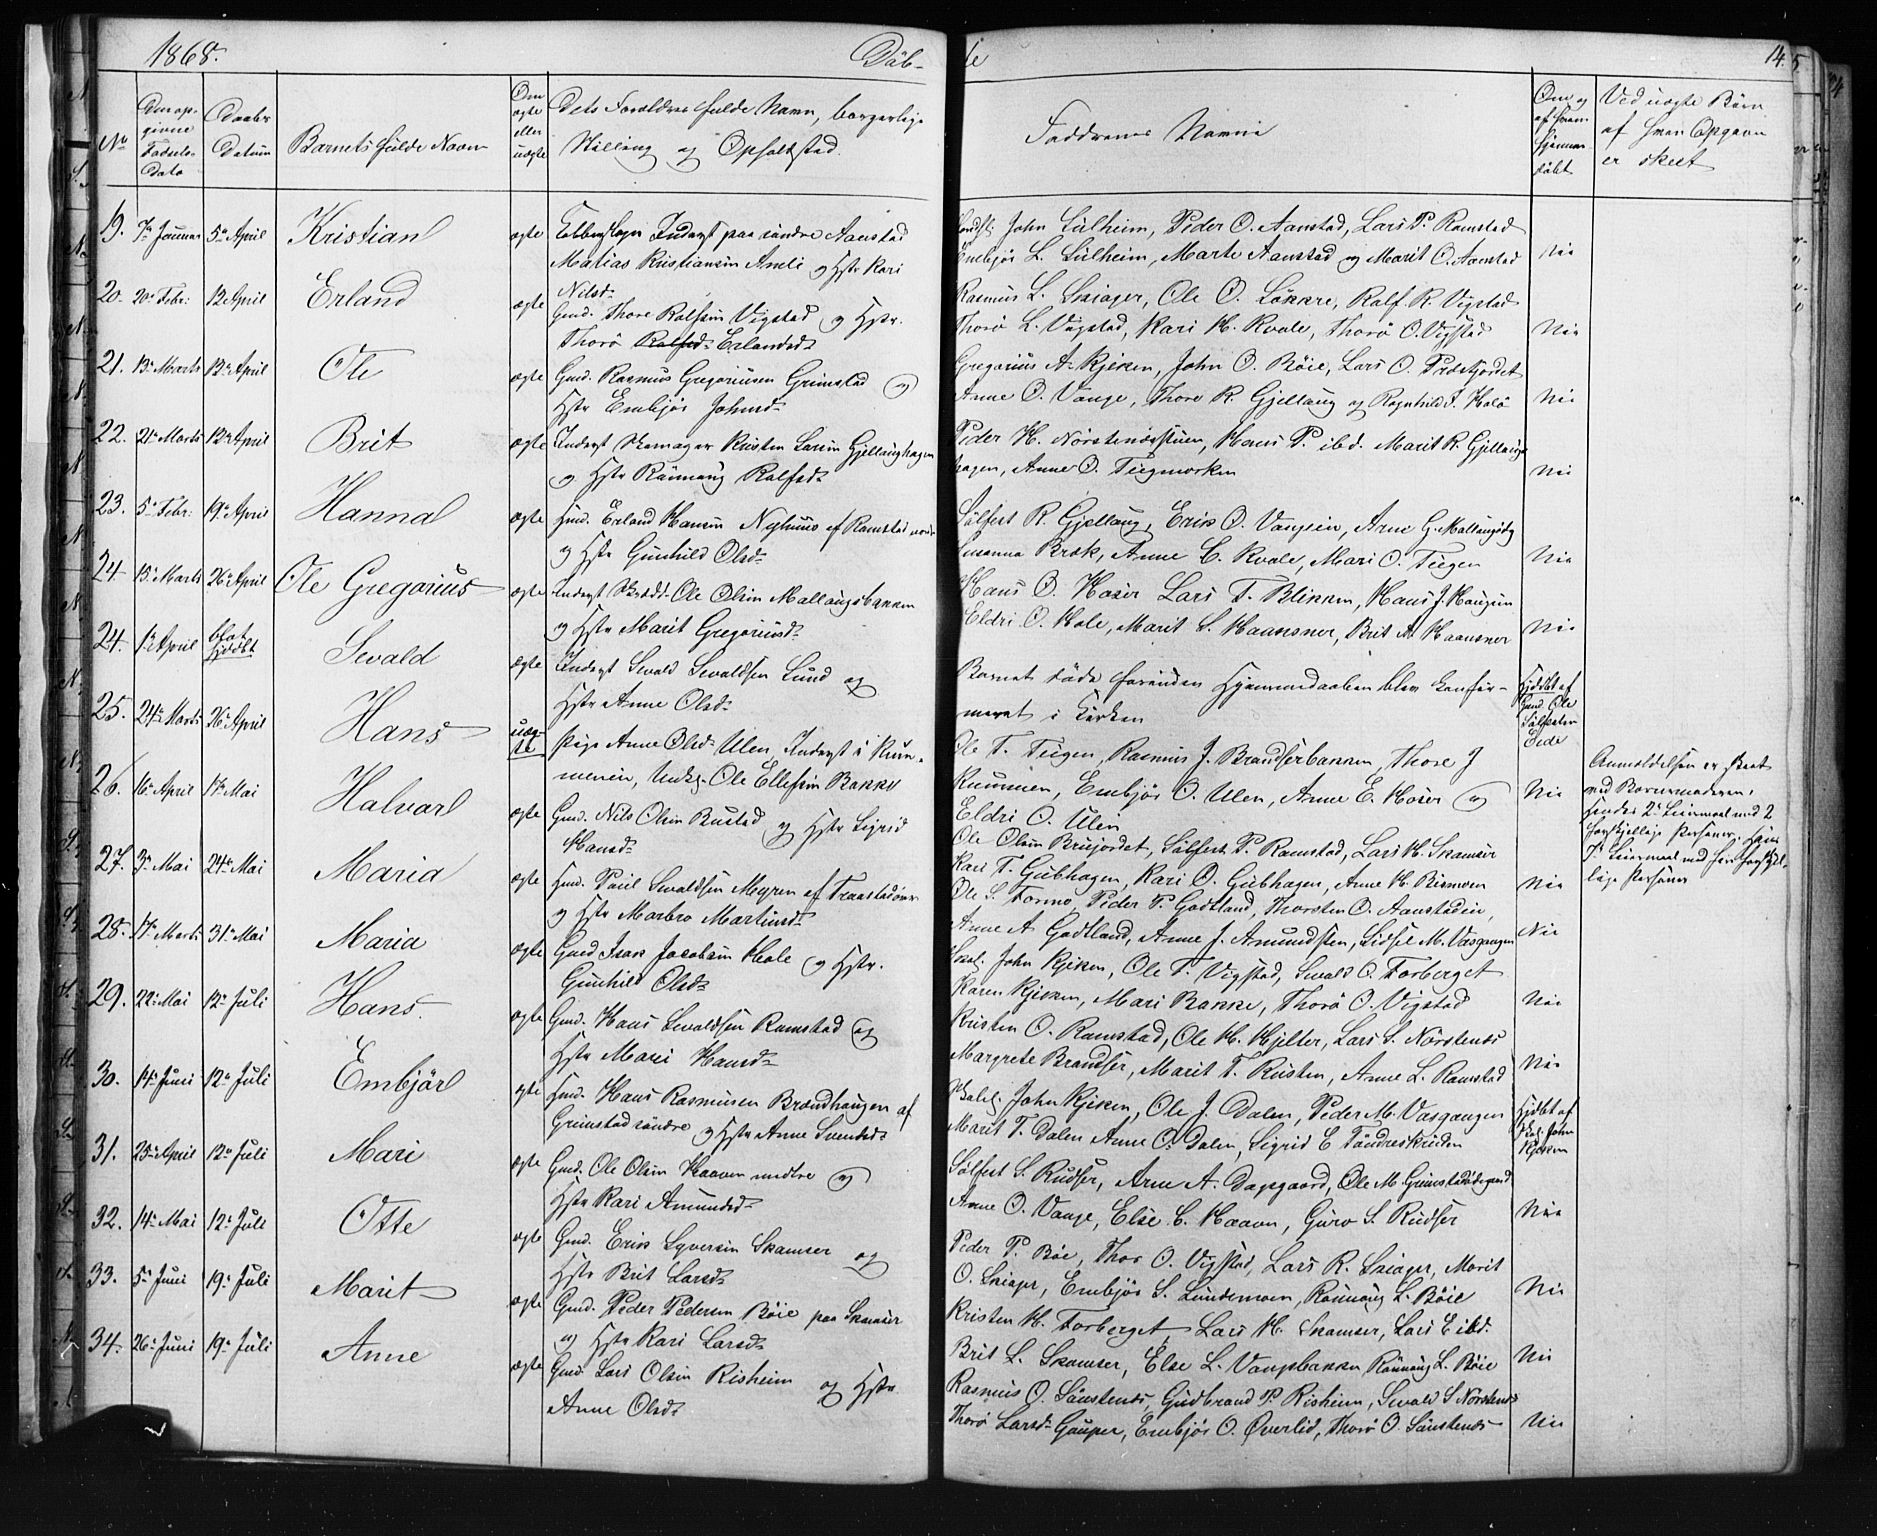 1868.
Döb-
te
14.
No
Den op-
givne
Fødsels-
Dato
Daabs
Datum
Barnets fulde Navn
Om
ægte
eller
uægte
Dets Forældres fulde Navn, borgerlige
Stilling og Opholdssted.
Faddrenes Navne
Om og
af hvem
hjemme-
döbt
Ved uægte Börn
af hvem Opgavn
er skeet
19. 7de Januar 5te April Kristian ægte
Inderst paa söndre Aanstad
Matias Kristiansen Ameli og Hstr Kari
Nilsd.
John Sülheim, Peder O. Aanstad, Lars P. Ramstad
Embjör L. Sülheim, Marte Aanstad og Marit O. Aanstad
Nei
20. 20de Febr: 12 April Erland ægte
Gmd. Thore Rolfsen Vigstad og Hstr.
Thorö Rolfsd. Erlandsd.
Rasmus L. Skiager, Ole O. Lökkre, Rolf R. Vigstad
Thorö L. Vigstad, Kari H. Kvale, Thorö O. Vigstad
Nei
21. 13de Marts 12te April Ole ægte
Gmd. Rasmus Gregoriusen Grimstad og
Hstr Embjör Johnsd.
Gregorius A. Kjeken, John O. Böie, Lars O. Præstjordet
Anne O. Vange, Thore R. Gjellaug og Ragnhild J. Hole
Nei
22. 21de Marts 12te April Brit ægte
Inderst Skomager Kristen Larsen Gjellaughagen
og Hstr Rönnaug Rolfsd.
Peder H. Nörstenæsstuen, Hans P. ibd. Marit R. Gjellaug-
hagen, Anne O. Tiegmorken
Nei
23. 5te Febr: 19de April Hanna ægte
Hmd. Erland Hansen Nyhuus af Ramstad nordre
og Hstr Gunhild Olsd.
Sölfest R. Gjellaug, Erik O. Vangsein, Arne G. Mallaugsbg
Susanna Bræk, Anne C. Kvale, Mari O. Tiegen
Nei
24 15de Marts 26de April Ole Gregorius ægte
Inderst Skrædd. Ole Olsen Mallaugsbakken
og Hstr Marit Gregoriusd.
Hans O. Hoser Lars T. Blikken, Hans J. Haugen
Eldri O. Hole, Marit S. Haansner, Brit M. Haansner
Nei
24. 1ste April blot hjdöbt Sevald ægte
Inderst Sevald Sevaldsen Lund og
Hstr Anne Olsd.
Barnet döde förinden Hjemmedaaben blev konfir-
meret i Kirken
Hjdöbt af
Gmd. Ole
Sölfesten
Eide
25. 24de Marts 26de April Hans uæg-
te
Pige Anne Olsd. Ulen, Inderst i Ruun-
menien, Ungk. Ole Ellefsen Bakke
Ole T. Tiegen, Rasmus J. Brandserbakken, Thore J
Ruumien, Embjör O. Ulen, Anne E. Hoser og
Eldri O. Ulen
Nei
Anmeldelsen er skeet
med Barnemoderen,
hendes 2de Leiermaal med 2
forskjellige Personer, hans
7de Leiermaal med fem forskjel-
lige Personer
26. 16de April 17de Mai Halvar ægte
Gmd. Nils Olsen Bustad og Hstr Sigrid
Hansd.
Ole Olsen Bruijordet, Sölfest P. Ramstad, Lars H. Skamser
Kari T. Gubhagen, Kari O. Gubhagen, Anne H. Bismoen
Nei
27. 3de Mai 24de Mai Maria ægte
Hmd. Paul Sevaldsen Myren af Traastadöien
og Hstr Marbro Martinsd.
Ole S. Formo, Peder P. Godtland, Thorsten O. Aanstadein,
Anne A. Godtland, Anne J. Amundsten, Lidsil M. Vasgangen
Nei
28. 17de Marts 31te Mai Maria ægte
Gmd Isak Jacobsen Hole og Hstr.
Gunhild Olsd.
Skol. John Kjeken, Ole T. Vigstad, Sevald O. Forberget
Karen Kjeken, Mari Bakke, Thorö O. Vigstad
Nei
29. 22de Mai 12te Juli Hans ægte
Gmd. Hans Sevaldsen Ramstad og
Hstr Mari Hansd.
Kristen O. Ramstad, Ole H. Hjelter, Lars S. Nörstenæs
Margrete Brandser, Marit T. Rusten, Anne L. Ramstad
Nei
30. 14de Juni 12te Juli Embjör ægte
Hmd. Hans Rasmusen Brændhaugen af
Grimstad söndre og Hstr Anne Svendsd.
Skolel. John Kjeken, Ole J. Dalen, Peder M. Vasgangen
Marit T. Dalen Anne O. Dalen, Sigrid E Töndreskriden
Hjdöbt af
Skol. John
Kjeken
31. 23de April 12te Juli Mari ægte
Gmd. Ole Olsen Haavn medlre og
Hstr Kari Amundsd.
Sölfest S. Rudser, Arne A. Dagsgaard, Ole M. Grimstadödegaard
Anne O. Vange, Else C. Haavn, Guro S. Rudser
Nei
32. 14de Mai 12te Juli Otte ægte
Gmd. Erik Syversen Skamser og
Hstr Brit Larsd.
Peder P. Böe, Thor O. Vigstad, Lars R. Skiager, Marit
O. Skiager, Embjör S. Lundemoen, Rönnaug L. Böie
Nei
33. 5te Juni 19de Juli Marit ægte
Gmd. Peder Pedersen Böie paa Skamser
og Hstr Kari Larsd.
Kristen H. Forberget, Lars H. Skamser, Lars E ibd.
Brit L. Skamser, Else L. Vangsbakken Rönnaug L. Böie
Nei
34. 26de Juni 19de Juli Anne ægte
Gmd. Lars Olsen Risheim og Hstr
Anne Olsd.
Rasmus O. Sönstenæs, Gudbrand P. Risheim, Sevald S Nörstenæs
Thorö Larsd. Gauper, Embjör O. Øverlid, Thorö O. Sönstenæs
Nei